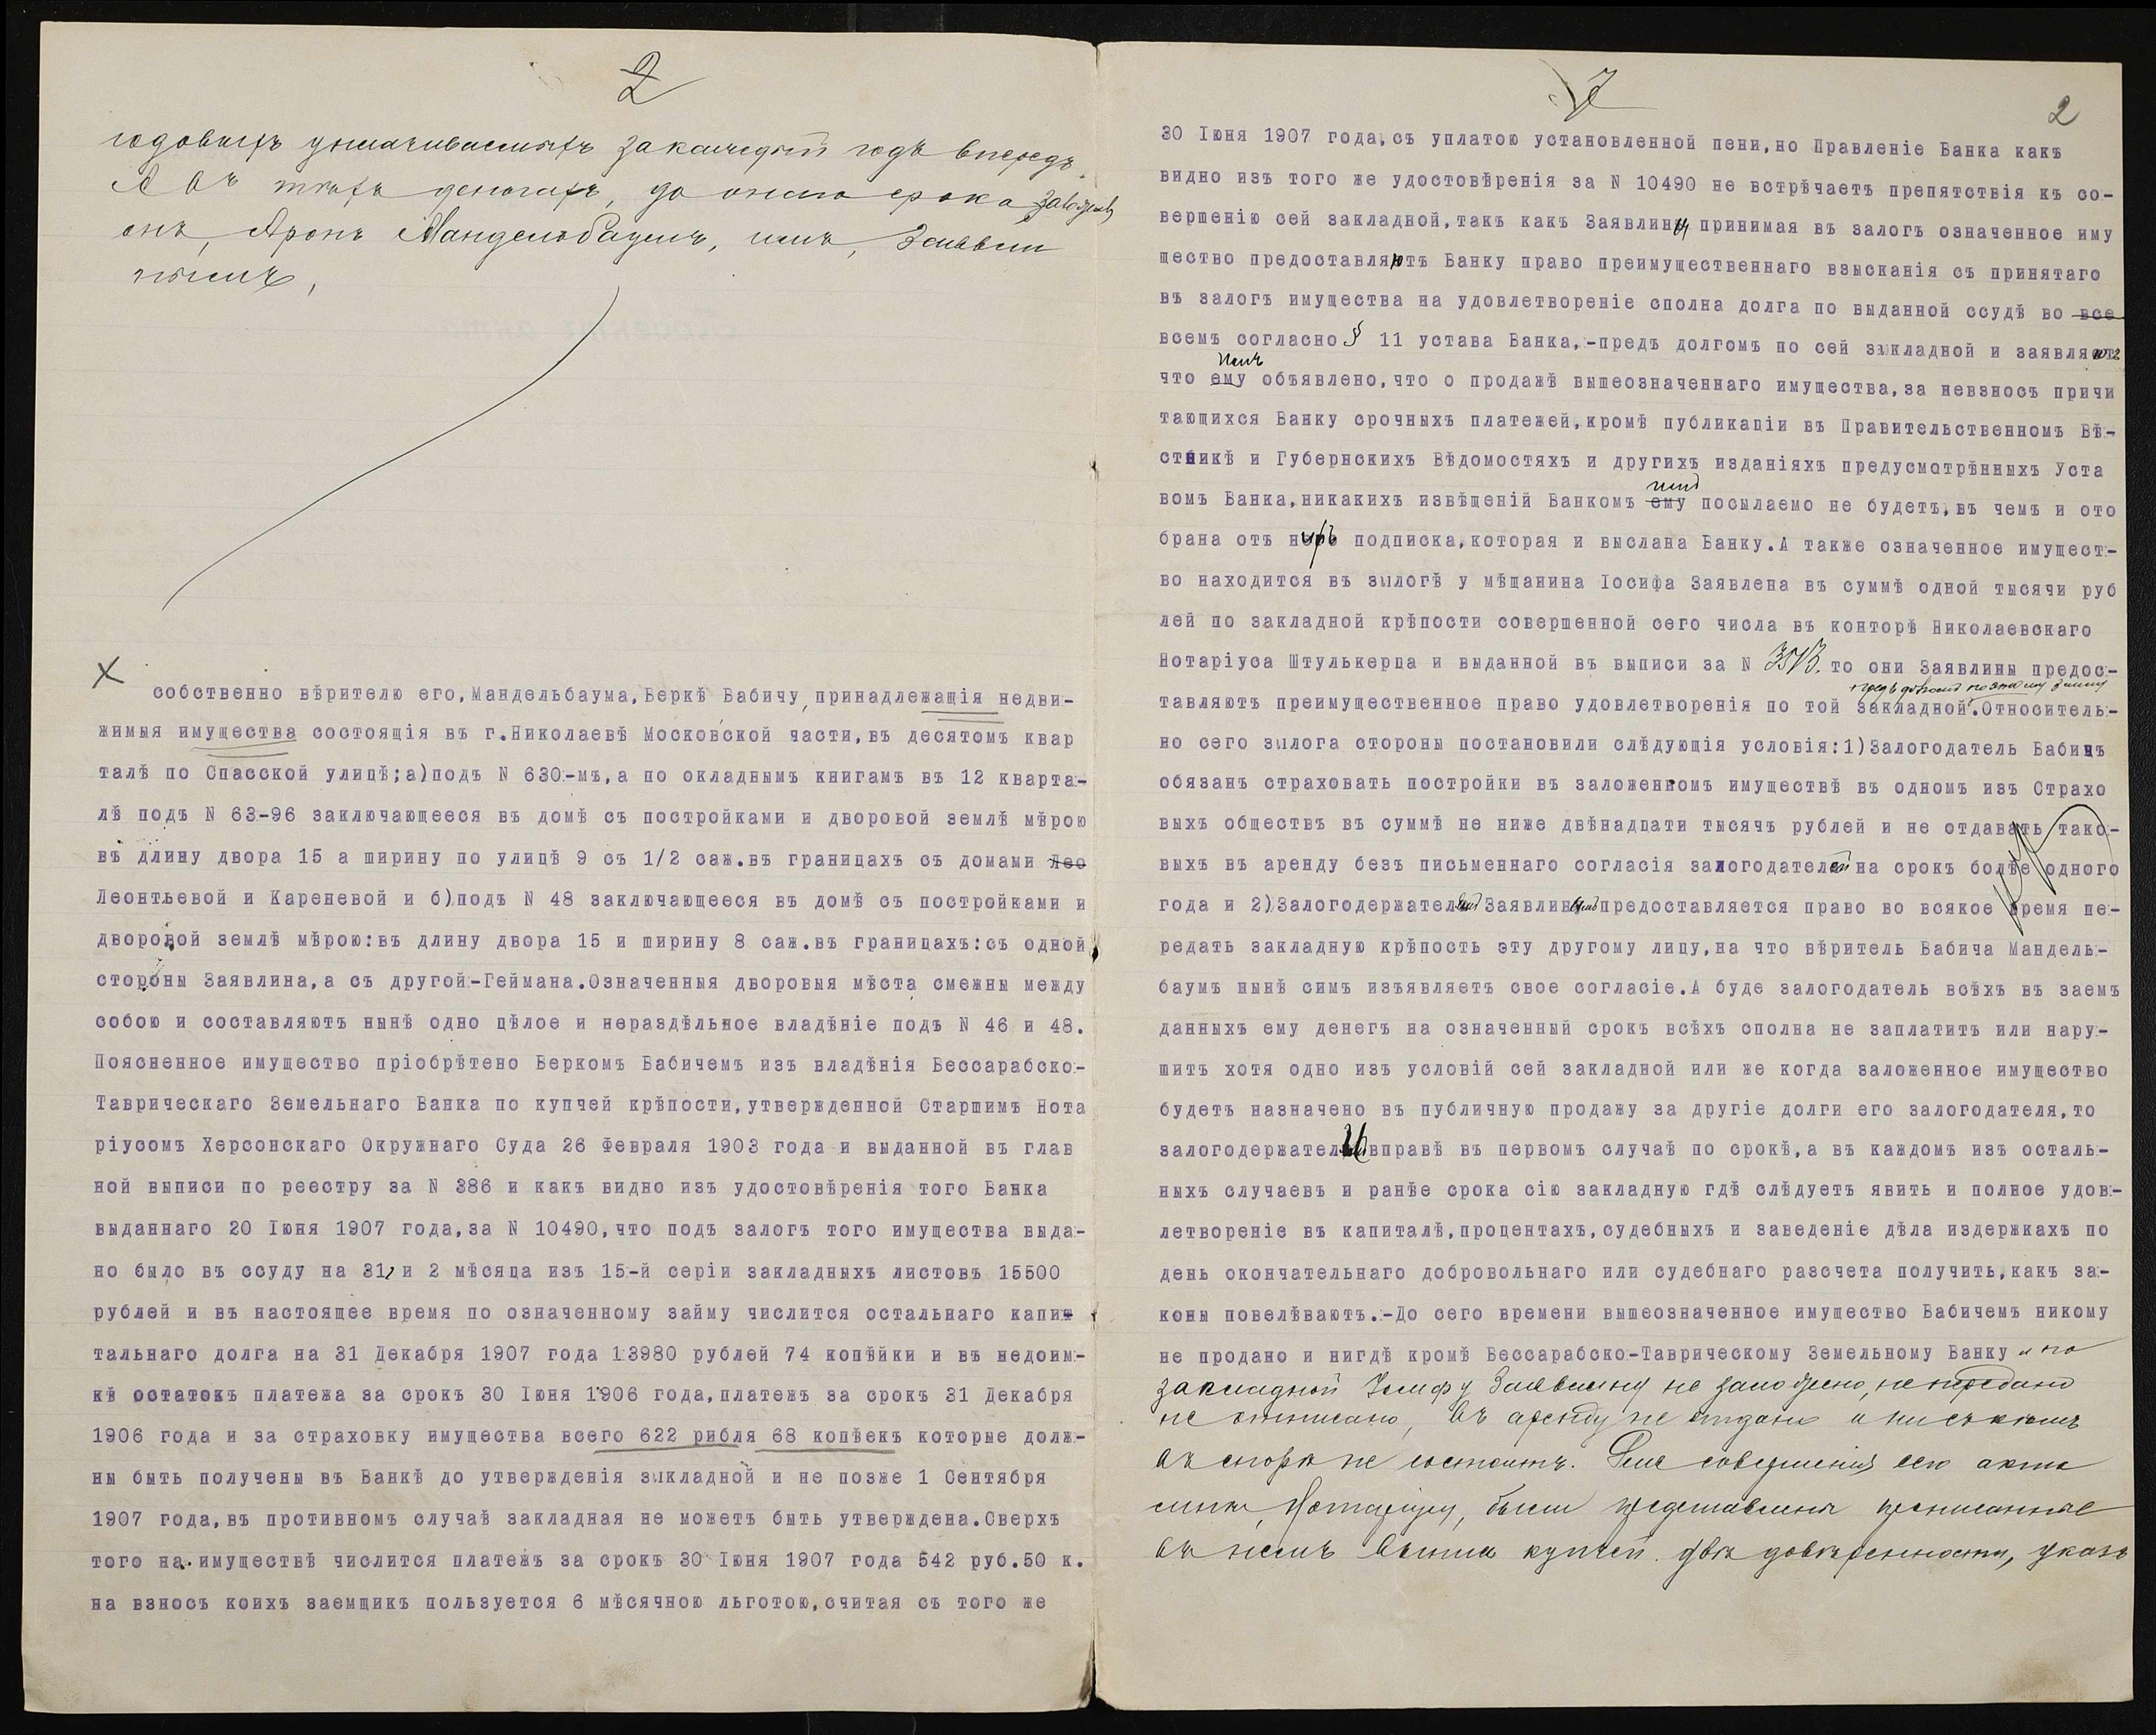 2
годовыхъ уплачиваемыхъ за каждый годъ впередъ.
А въ тѣхъ деньгахъ, до онаго срока заложилъ
онъ, Аронъ Мандельбаумъ, имъ, Заявли
нымъ,
X собственно вѣрителю его, Мандельбаума, Беркѣ Бабичу, принадлежащія недви-
жимыя имущества состоящія въ г.Николаевѣ Московской части, въ десятомъ квар
талѣ по Спасской улицѣ; а)подъ N 630-мъ, а по окладнымъ книгамъ въ 12 кварта-
лѣ подъ N 63-96 заключающееся въ домѣ съ постройками и дворовой землѣ мѣрою
въ длину двора 15 а ширину по улицѣ 9 съ 1/2 саж.въ границахъ съ домами Лео
Леонтьевой и Кареневой и б)подъ N 48 заключающееся въ домѣ съ постройками и
дворовой землѣ мѣрою:въ длину двора 15 и ширину 8 саж.въ границахъ:съ одной
стороны Заявлина, а съ другой-Геймана.Означенныя дворовыя мѣста смежны между
собою и составляютъ нынѣ одно цѣлое и нераздѣльное владѣніе подъ N 46 и 48.
Поясненное имущество пріобрѣтено Беркомъ Бабичемъ изъ владѣнія Бессарабско-
Таврическаго Земельнаго Банка по купчей крѣпости, утвержденной Старшимъ Нота
ріусомъ Херсонскаго Окружнаго Суда 26 Февраля 1903 года и выданной въ глав
ной выписи по реестру за N 386 и какъ видно изъ удостовѣренія того Банка
выданнаго 20 Іюня 1907 года, за N 10490, что подъ залогъ того имущества выда-
но было въ ссуду на 31 и 2 мѣсяца изъ 15-й серіи закладныхъ листовъ 15500
рублей и въ настоящее время по означенному займу числится остальнаго капит
тальнаго долга на 31 Декабря 1907 года 13980 рублей 74 копѣйки и въ недоим-
кѣ остатокъ платежа за срокъ 30 Іюня 1906 года, платежъ за срокъ 31 Декабря
1906 года и за страховку имущества всего 622 рибля 68 копѣекъ которые долж-
ны быть получены въ Банкѣ до утвержденія зыкладной и не позже 1 Сентября
1907 года, въ противномъ случаѣ закладная не можетъ быть утверждена.Сверхъ
того на имуществѣ числится платежъ за срокъ 30 Іюня 1907 года 542 руб.50 к.
на взносъ коихъ заемщикъ пользуется 6 мѣсячною льготою, считая съ того же
2
30 Іюня 1907 года, съ уплатою установленной пени, но Правленіе Банка какъ
видно изъ того же удостовѣренія за N 10490 не встрѣчаетъ препятствія къ со-
вершенію сей закладной, такъ какъ Заявлины принимая въ залогъ означенное иму
щество предоставляютъ Банку право преимущественнаго взысканія съ принятаго
въ залогъ имущества на удовлетвореніе сполна долга по выданной ссудѣ во все
всемъ согласно § 11 устава Банка,-предъ долгомъ по сей зыкладной и заявляютъ
имъ
что ему объявлено, что о продажѣ вышеозначеннаго имущества, за невзносъ причи
тающихся Банку срочныхъ платежей, кромѣ публикаціи въ Правительственномъ Вѣ-
стникѣ и Губернскихъ Вѣдомостяхъ и другихъ изданіяхъ предусмотрѣнныхъ Уста
имъ
вомъ Банка, никакихъ извѣщеній Банкомъ ему посылаемо не будетъ, въ чемъ и ото
брана отъ нихъ подписка, которая и выслана Банку.А также означенное имущест-
во находится въ зылогѣ у мѣщанина Іосифа Заявлена въ суммѣ одной тысячи руб
лей по закладной крѣпости совершенной сего числа въ конторѣ Николаевскаго
Нотаріуса Штулькерца и выданной въ выписи за N 3513. то они Заявлины предос-
предъ долгомъ по этому займу
тавляютъ преимущественное право удовлетворенія по той закладной.Относитель-
но сего зылога стороны постановили слѣдующія условія:1)Залогодатель Бабичъ
обязанъ страховать постройки въ заложенномъ имуществѣ въ одномъ изъ Страхо
выхъ обществъ въ суммѣ не ниже двѣнадцати тысячъ рублей и не отдавать тако-
выхъ въ аренду безъ письменнаго согласія залогодателей на срокъ болѣе одного
года и 2)Залогодержателямъ Заявлинымъ предоставляется право во всякое время пе-
редать закладную крѣпость эту другому лицу, на что вѣритель Бабича Мандель-
баумъ нынѣ симъ изъявляетъ свое согласіе.А буде залогодатель всѣхъ въ заемъ
данныхъ ему денегъ на означенный срокъ всѣхъ сполна не заплатитъ или нару-
шитъ хотя одно изъ условій сей закладной или же когда заложенное имущество
будетъ назначено въ публичную продажу за другіе долги его залогодателя, то
залогодержатели вправѣ въ первомъ случаѣ по срокѣ, а въ каждомъ изъ осталь-
ныхъ случаевъ и ранѣе срока сію закладную гдѣ слѣдуетъ явить и полное удов-
летвореніе въ капиталѣ, процентахъ, судебныхъ и заведеніе дѣла издержкахъ по
день окончательнаго добровольнаго или судебнаго разсчета получить, какъ за-
коны повелѣваютъ.-До сего времени вышеозначенное имущество Бабичемъ никому
не продано и нигдѣ кромѣ Бессарабско-Таврическому Земельному Банку и по
закладной Іосифу Заявлину не заложено, не передано
не отписано, въ аренду не отдано и ни съ кѣмъ
въ спорѣ не состоитъ. Для совершенія сего акта
мнѣ, Нотаріусу, были представлены прописанные
въ немъ выше купчей, двѣ довѣренности, указъ